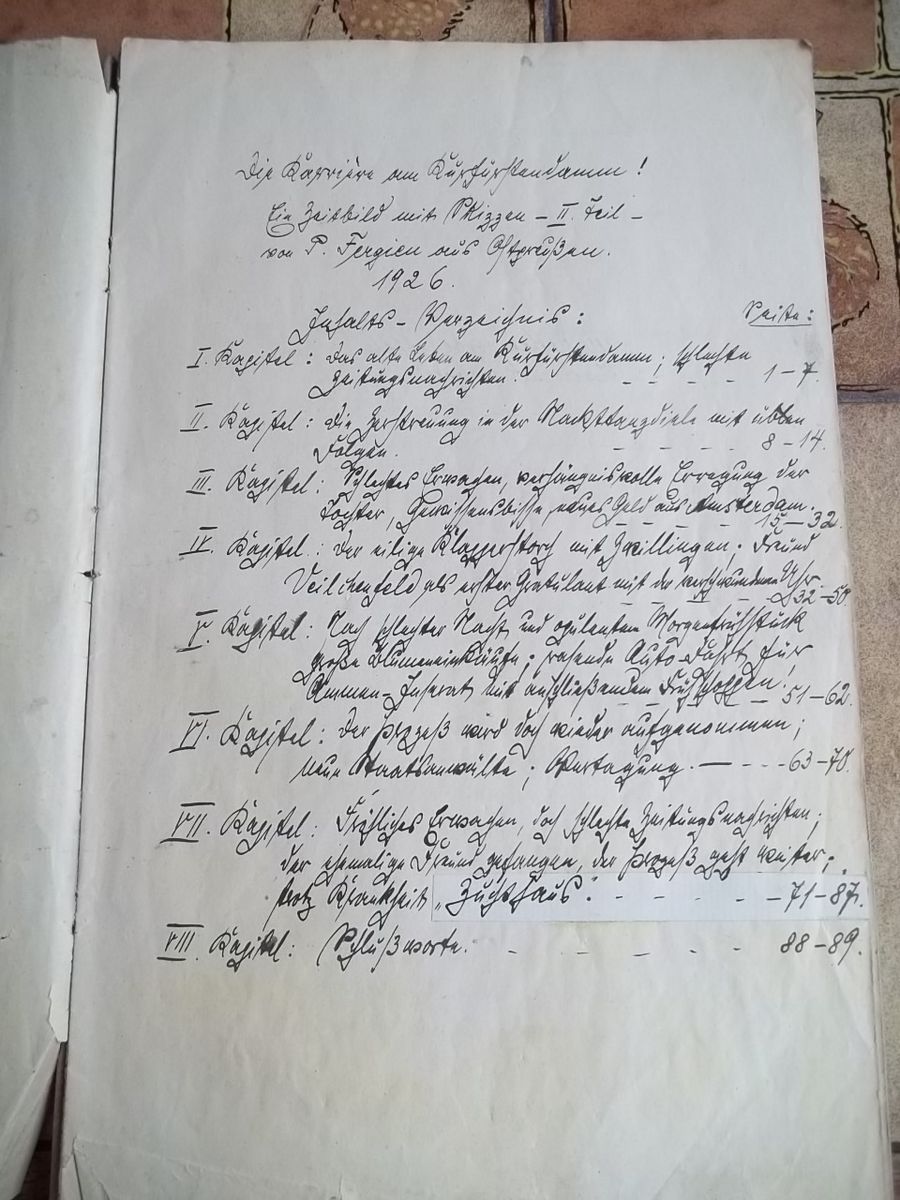 Die Karrière am Kurfürstendamm!
Ein Zeitbild mit Skizzen – II. Teil –
von P. Fergien aus Ostpreußen.
1926.
Inhalts – Verzeichnis: Seite:
I. Kapitel: Das alte Leben am Kurfürstendamm; schlechte
Zeitungsnachrichten. – – – – 1–7.
II. Kapitel: Die Zerstreuung in der Nackttanzdiele mit üblen
Folgen. – – – – 8–14.
III. Kapitel: Schlechtes Erwachen, verhängnisvolle Erregung der
Tochter, Gewissensbisse, neues Geld aus Amsterdam.
– – – – 15–32.
IV. Kapitel: Der eilige Klapperstorch mit Zwillingen. Freund
Veilchenfeld als erster Gratulant mit der verschwundenen Uhr.
– – – – 32–50.
V. Kapitel: Nach schlechter Nacht und opulentem Morgenfrühstück
große Blumeneinkäufe; rasende Auto-Fahrt für
Ammen-Inserat mit anschließendem Frühschoppen!
– – – – 51–62.
VI. Kapitel: Der Prozeß wird doch wieder aufgenommen;
neue Staatsanwälte; Vertagung. – – – – 63–70.
VII. Kapitel: Fröhliches Erwachen, doch schlechte Zeitungsnachrichten;
der ehemalige Freund gefangen, der Prozeß geht weiter;
trotz Krankheit „Zuchthaus“. – – – – – 71–87.
VIII. Kapitel: Schlußworte. – – – – – 88–89.